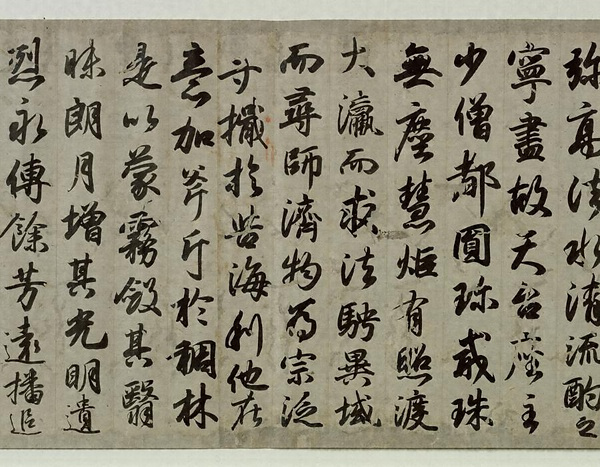 弥高法水清流酌之
寧盡故天台座主
少僧都圓珎戒珠
無塵慧炬有照渡
大瀛而求法騁異域
而尋師濟物為宗泛
寸檝於苦海利他在
意加斧斤於稠林
是以蒙霧斂其翳
昧朗月增其光明遺
烈永傳餘芳遠播追